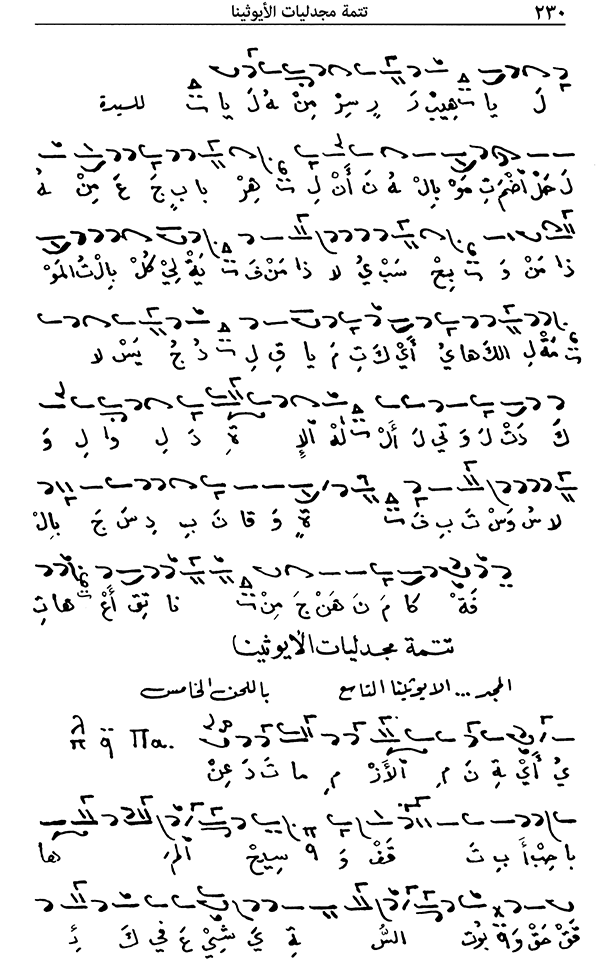 ٢٣٠ تتمة مجدليات الأيوثينا
لَ يا هيبْ رَ دِ سِرْ مِنْ هُ لَ يا للسيدة
لَ حَلْ أضْمَ تِ مَوْ بِالْ هُ نَ أَنْ لِ هِرْ با بٍ جَ عَ مِنْ هُ
ذا مَنْ وَ بِحْ سَبْ يُ لا ذا مَنْ فَ يَةْ لِيْ كُلْ بِالْ تُ المَوْ
مَةْ لِ الكَ هايُ أَيْ كَ تِ مَ يا قِ لِ دُ جُ يَسْ لا
كَ دَتْ لَ وَ تي لَ أَلْ لَهْ الإِ ةِ دَ لِ وا لِ وَ
لا سُ وَسْ تَ بِ فَ ةٍ وَ قا نَ بِ دِ سَ جَ بِالْ
فَةْ كا مَ نَ هَنْ جَ مِنْ نا تِقِ أَعْ هاتِ
تتمة مجدليات الأيوثينا
المجد ... الايوثينا التاسع باللحن الخامس
λ π q̈ Πa.
يُ أَيْ ةِ نَ مِ الأَزْ مِ ما تَ دَ عِنْ
با حِبْ أَ بِ تَ قَفْ وَ سيحْ المَ ها
قَقْ حَقْ وَ بُوت السُّ ةِ يَ شِيْ عَ في كَ دِ